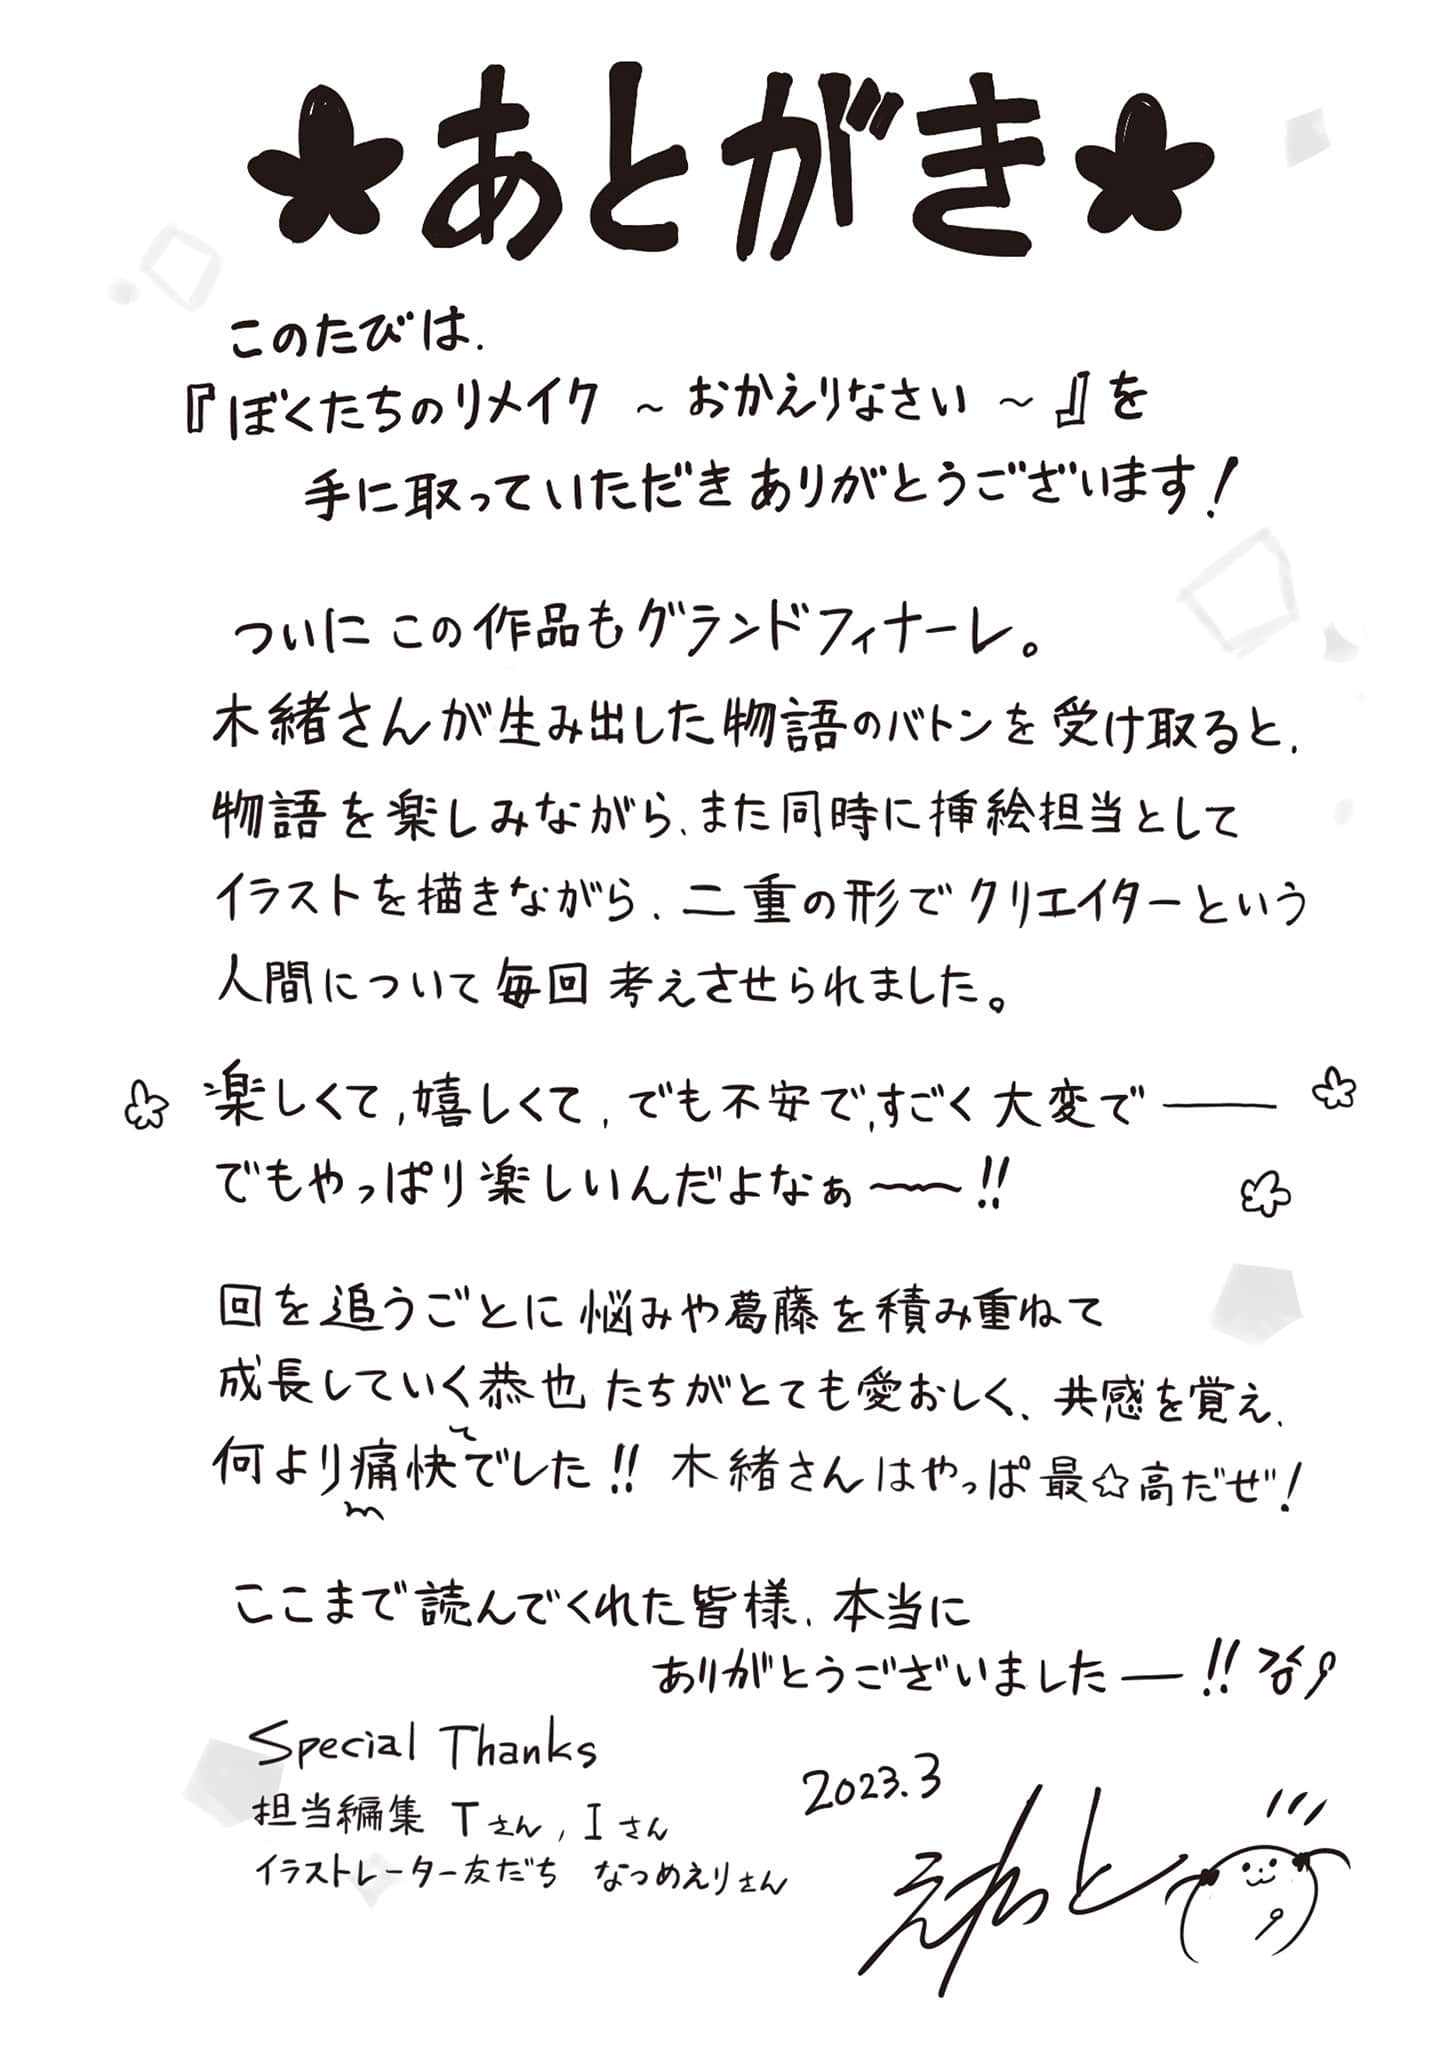 ★あとがき★
このたびは、
『ぼくたちのリメイク ～おかえりなさい～』を
手に取っていただきありがとうございます!
ついにこの作品もグランドフィナーレ。
木緒さんが生み出した物語のバトンを受け取ると、
物語を楽しみながら、また同時に挿絵担当として
イラストを描きながら、二重の形でクリエイターという
人間について毎回考えさせられました。
楽しくて、嬉しくて、でも不安で、すごく大変で――
でもやっぱり楽しいんだよなぁ~~!!
回を追うごとに悩みや葛藤を積み重ねて
成長していく恭也たちがとても愛おしく、共感を覚え、
何より痛快でした!! 木緒さんはやっぱ最☆高だぜ!
ここまで読んでくれた皆様、本当に
ありがとうございましたー!!
Special Thanks
担当編集 Tさん, Iさん
イラストレーター友だち なつめえりさん
2023.3
えれっと